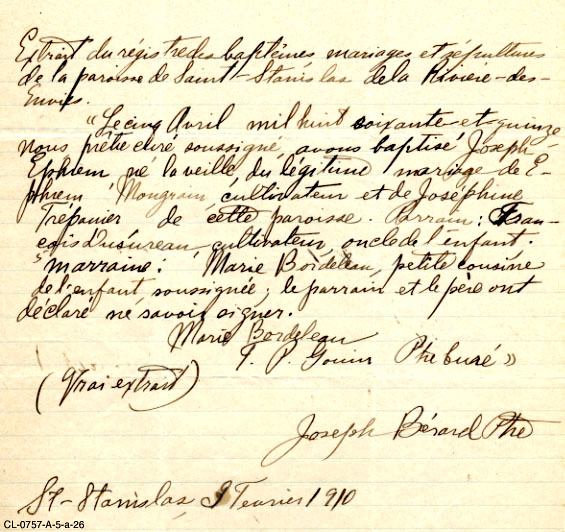 Extrait du régistre des baptêmes mariages et sépultures
de la paroisse de Saint-Stanislas de la Rivière-des-
Envies.
"Le cinq Avril mil huit soixante-et-quinze
nous prêtre curé soussigné avons baptisé Joseph
Ephrem né la veille du légitime mariage de E-
phrem Mongrain cultivateur et de Joséphine
Trépanier de cette paroisse. Parrain: Fran-
cois Dusureau cultivateur, oncle de l'enfant.
marraine: Marie Bordeleau, petite cousine
de l'enfant, soussignée; le parrain et le père ont
déclaré ne savoir signer.
Marie Bordeleau
F. P. Gouin Ptre curé»
(Vrai extrait)
Joseph Bérard Ptre
St-Stanislas, 9 Fevrier 1910
CL-0757-A-5-a-26